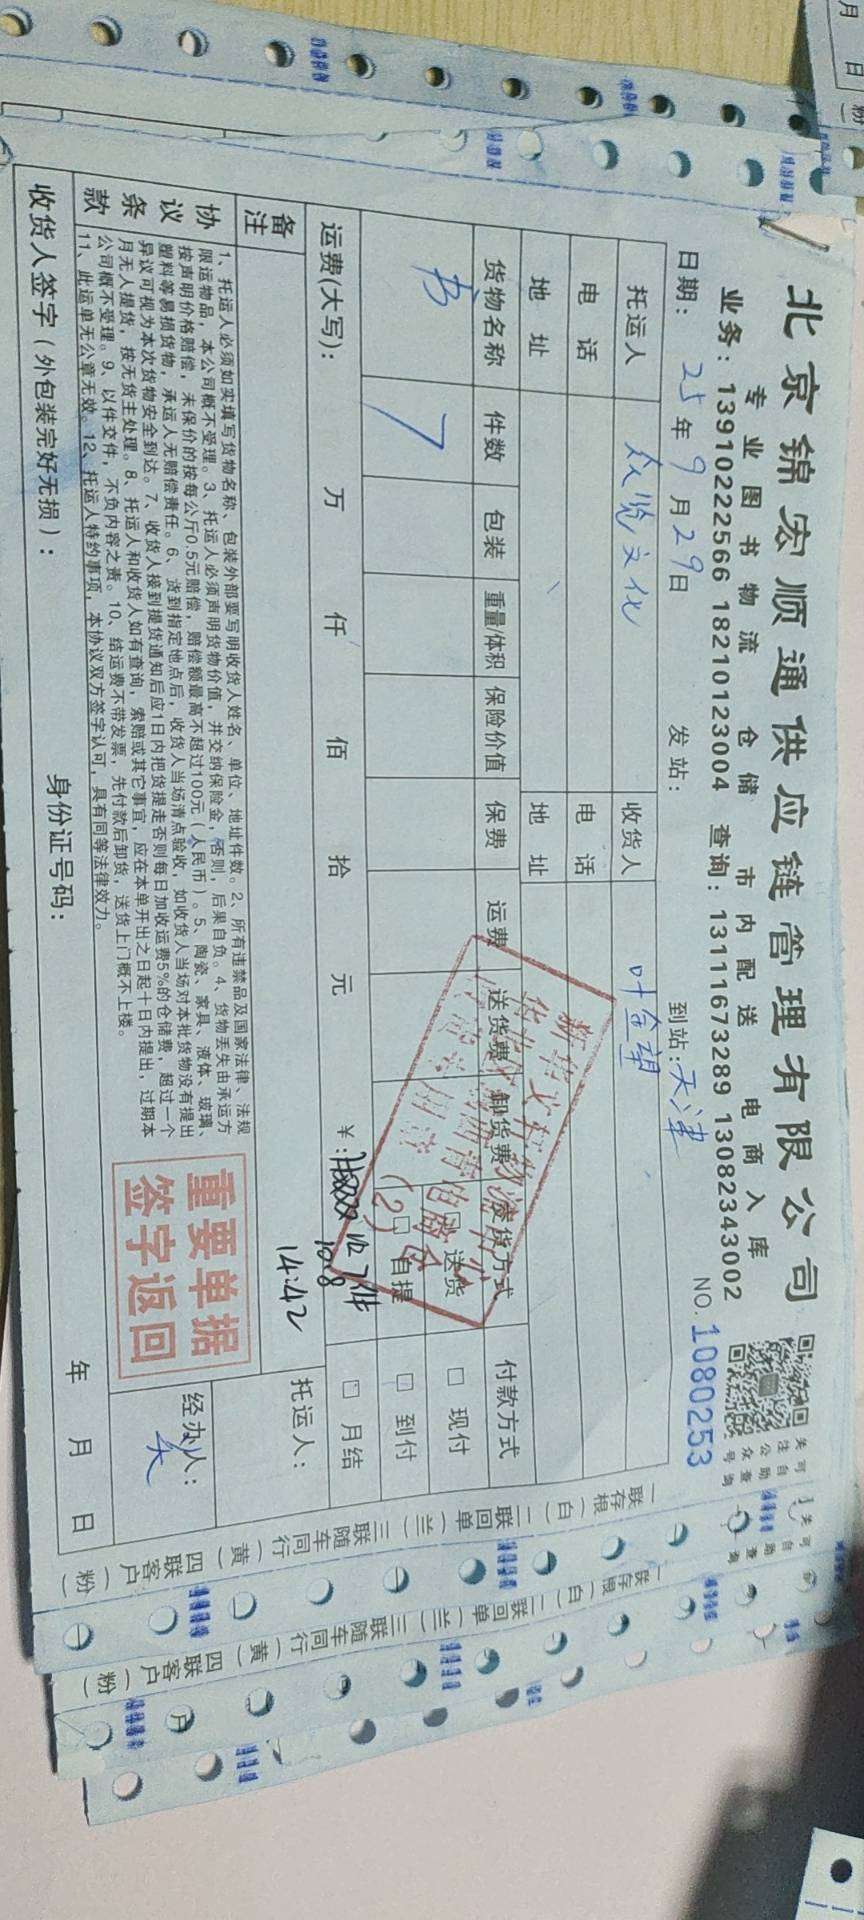 北京锦宏顺通供应链管理有限公司
专业图书物流 仓储 市内配送 电商入库
业务:13910222566 18210123004 查询:13111673289 13082343002
关注公众号
可自助查询
日期: 25年9月29日 发站: 到站:天津 NO.1080253
托运人 众览文化 收货人 叶全望
电话 电话
地址 地址
货物名称 件数 包装 重量/体积 保险价值 保费 运费 送货费 卸货费 提货方式 付款方式
书 7 送货 现付
自提 到付
运费(大写): 万 仟 佰 拾 元 ¥: 月结
收7件
10.8
14:42
(2)
备注
托运人:
协议条款
1、托运人必须如实填写货物名称、包装外部要写明收货人姓名、单位、地址件数。2、所有违禁品及国家法律、法规
限运物品,本公司概不受理。3、托运人必须声明货物价值,并交纳保险金,否则,后果自负。4、货物丢失由承运方
按声明价格赔偿,未保价的按每公斤0.5元赔偿,赔偿额最高不超过100元(人民币)。5、陶瓷、家具、液体、玻璃、
塑料等易损货物,承运人无赔偿责任。6、货到指定地点后,收货人当场清点验收,如收货人当场对本批货物没有提出
异议可视为本次货物安全到达。7、收货人接到提货通知后应1日内把货提走否则每日加收运费5%的仓储费,超过一个
月无人提货,按无货主处理。8、托运人和收货人如有查询,索赔或其它事宜,应在本单开出之日起十日内提出,过期本
公司概不受理。9、以件交件,不负内容之责。10、结运费不带发票,先付款后卸货,送货上门概不上楼。
11、此运单无公章无效。12、托运人特约事项,本协议双方签字认可,具有同等法律效力。
重要单据
签字返回
经办人:
收货人签字(外包装完好无损): 身份证号码: 年 月 日
一联存根(白)二联回单(兰)三联随车同行(黄)四联客户(粉)
一联存根(白)二联回单(兰)三联随车同行(黄)四联客户(粉)